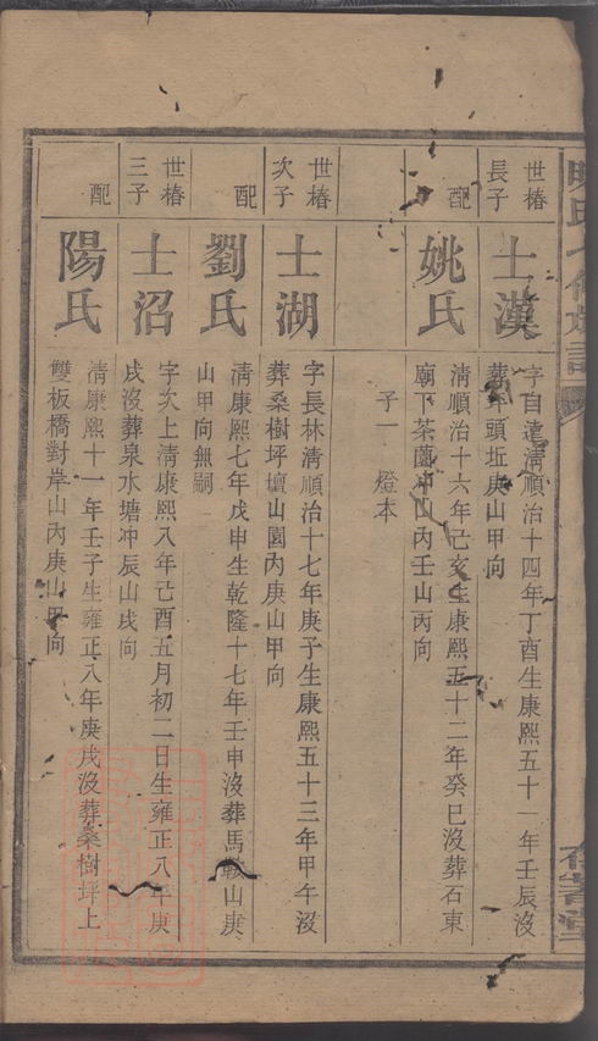 世椿
長子
士漢
字自遠清順治十四年丁酉生康熙五十一年壬辰沒
葬坪頭坵庚山甲向
配
姚氏
清順治十六年己亥生康熙五十二年癸巳沒葬石東
廟下茶園冲山內壬山丙向
子一 燈本
世椿
次子
士湖
字長林清順治十七年庚子生康熙五十三年甲午沒
葬桑樹坪壇山園內庚山甲向
配
劉氏
清康熙七年戊申生乾隆十七年壬申沒葬馬鞍山庚
山甲向無嗣
世椿
三子
士沼
字次上清康熙八年己酉五月初二日生雍正八年庚
戌沒葬泉水塘冲辰山戌向
配
陽氏
清康熙十一年壬子生雍正八年庚戌沒葬桑樹坪上
雙板橋對岸山內庚山甲向